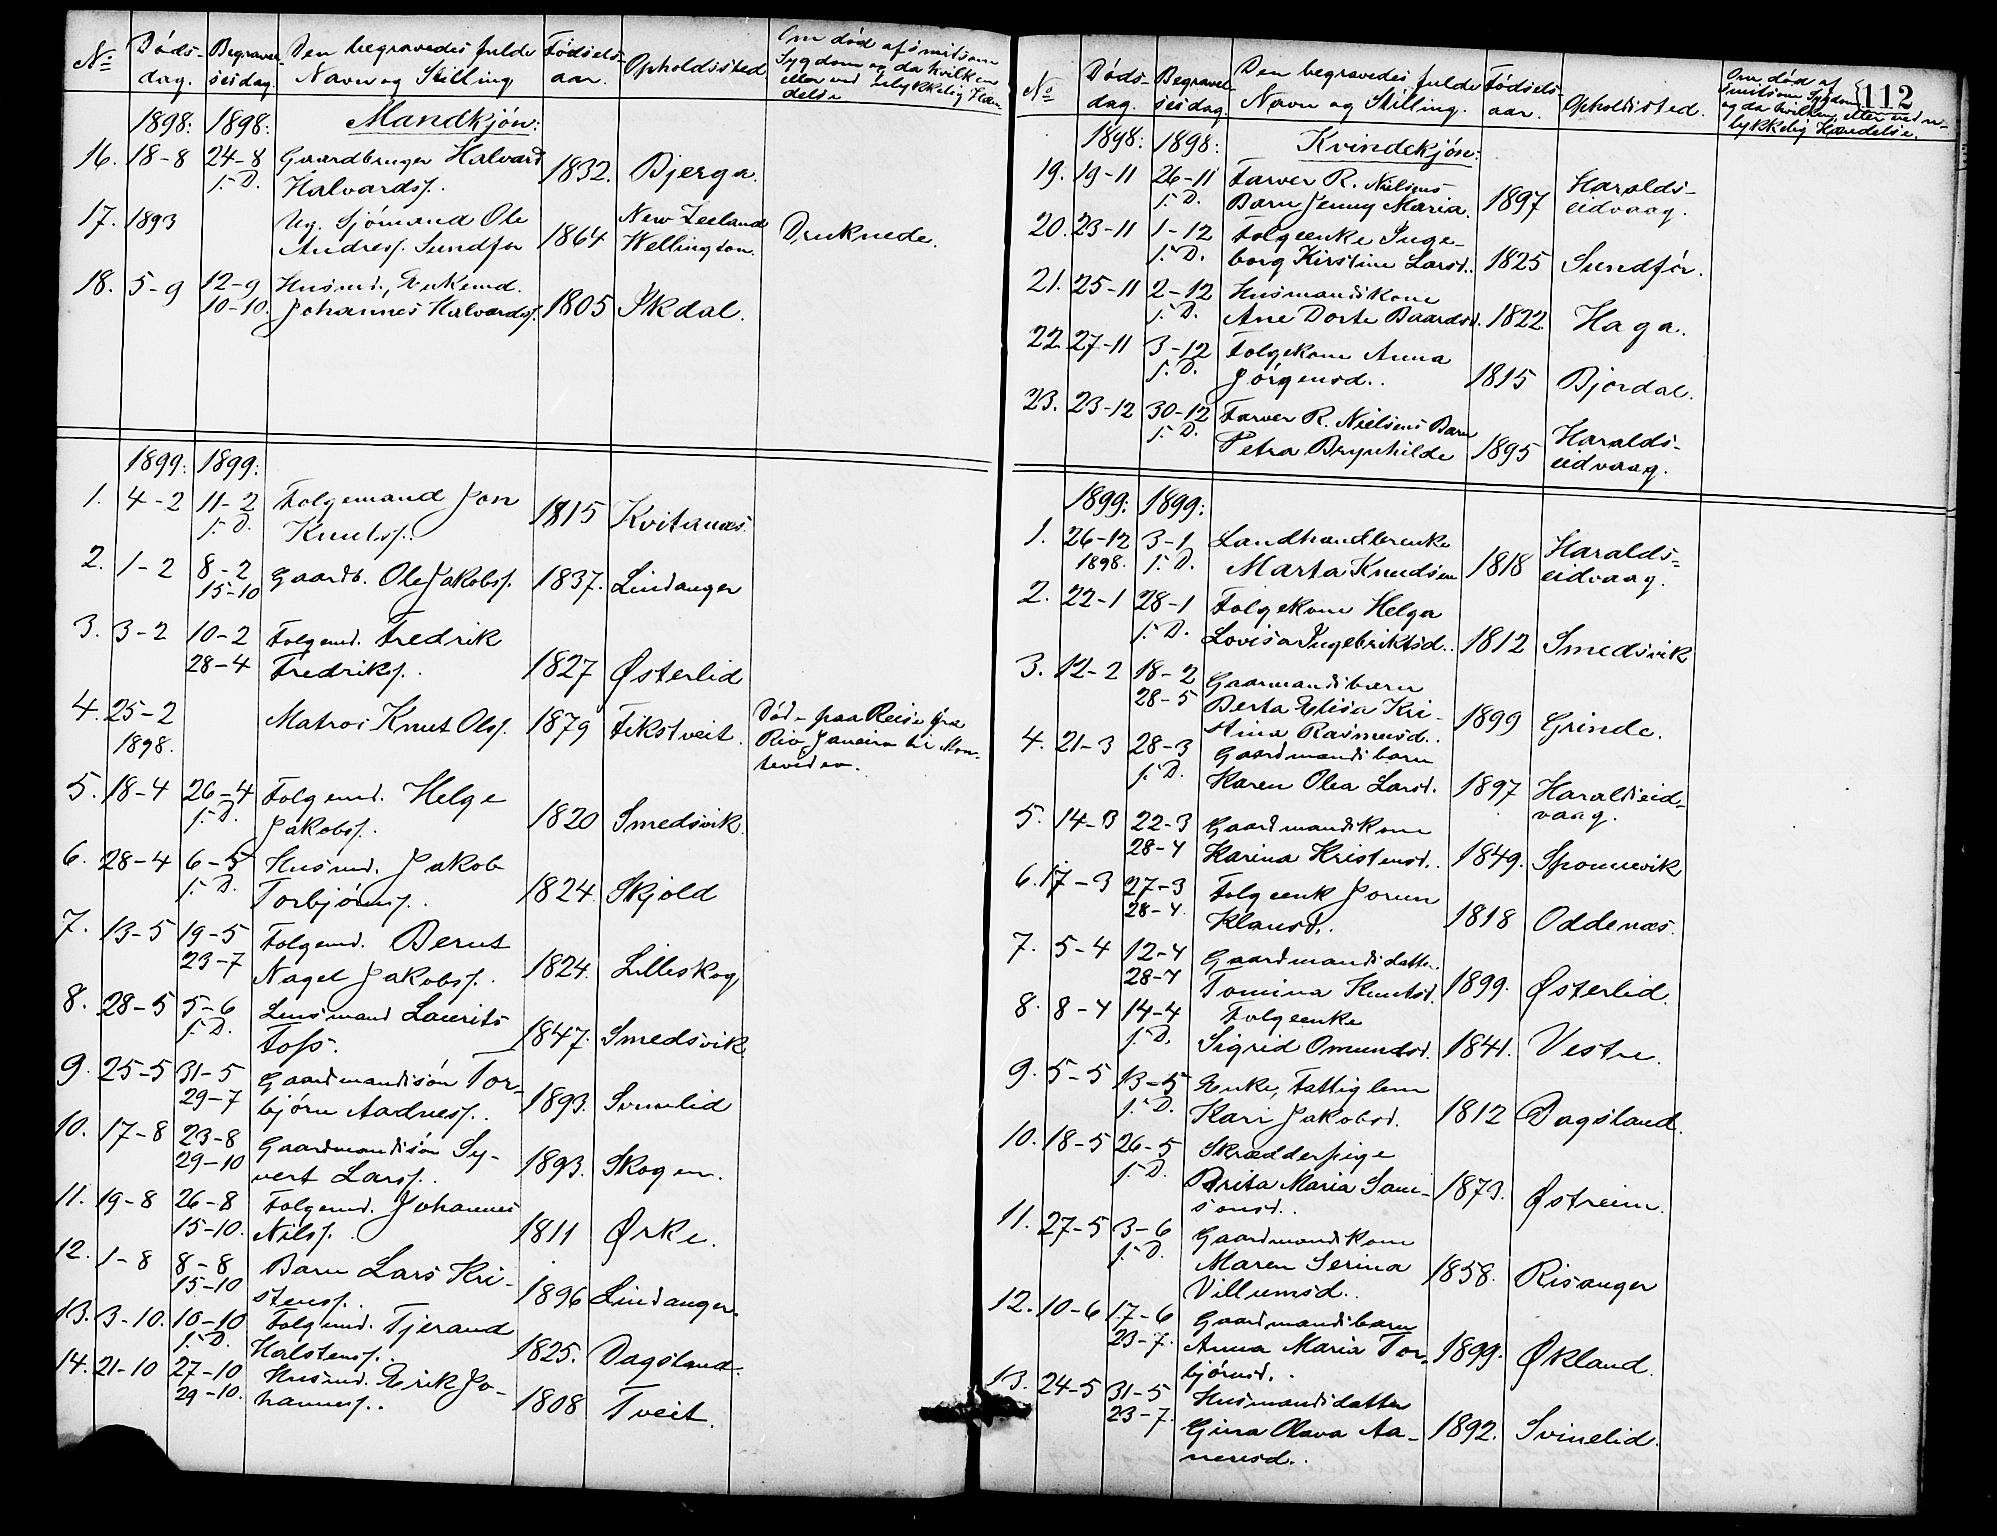 No
Døds-
dag.
Begravel-
sesdag.
Den begravedes fulde
Navn og Stilling
Fødsels-
aar.
Opholdssted.
Om død af smitsom
Sygdom og da hvilken
eller ved Ulykkelig Hæn-
delse
1898: 1898: Mandkjøn:
16. 18-8 24-8 Gaardbruger Halvard
s. D. Halvards. 1832. Bjerga.
17. 1893 Ug. Sjømand Ole New Zeeland
Andreas. Sundfør 1864 Wellington. Druknede.
18. 5-9 12-9 Husmd., Enkemd.
10-10. Johannes Halvards. 1805 Ilkdal.
1899: 1899:
1. 4-2 11-2 Folgemand Jon
s. D. Knuts. 1815 Kvitanæs.
2. 1-2 8-2 Gaardb. Ole Jakobs. 1837. Lindanger
15-10
3. 3-2 10-2 Folgemd. Fredrik
28-4 Fredriks. 1827 Østerlid
4. 25-2 Matros Knut Ols. 1879 Fikstveit. Død paa Reise fra
1898. Rio Janeiro til Mon-
tevideo.
5. 18-4 26-4 Folgemd. Helge
s. D. Jakobs. 1820 Smedsvik.
6. 28-4 6-5 Husmd. Jakob
s. D. Torbjørns. 1824. Skjold
7. 13-5 19-5 Folgemd. Bernt
23-7 Nagel Jakobs. 1824. Lilleskog
8. 28-5 5-6 Lensmand Laurits
s. D. Foss. 1847. Smedsvik
9. 25-5 31-5 Gaardmandssøn Tor-
29-7 bjørn Aadnes. 1893. Svinelid
10. 17-8 23-8 Gaardmandssøn Sy-
29-10 vert Lars. 1893. Skogen.
11. 19-8 26-8 Folgemd. Johannes
15-10. Nils. 1811 Ørke.
12. 1-8 8-8 Barn Lars Kri-
15-10 stens. 1896 Lindanger.
13. 3-10. 10-10 Folgemd. Tjerand
s. D. Halstens. 1825. Dagsland.
14. 21-10 27-10 Husmd. Erik Jo-
29-10. hannes. 1808 Tveit.
No
Døds-
dag.
Begravel-
sesdag.
Den begravedes fulde
Navn og Stilling.
Fødsels-
aar.
Opholdssted.
Om død af
smitsom Sygdom
og da hvilken, eller ved u-
lykkelig Hændelse.
112
1898: 1898: Kvindekjøn:
19. 19-11 26-11 Farver R. Nielsens
s. D. Barn Jenny Maria. 1897 Haralds-
eidvaag.
20. 23-11 1-12 Folgeenke Inge-
s. D. borg Kirstine Larsd. 1825 Sundfør.
21. 25-11 2-12 Husmandskone
s. D. Ane Dorte Baardsd. 1822. Haga.
22. 27-11 3-12 Folgekone Anna
s. D. Jørgensd. 1815 Bjordal.
23. 23-12 30-12 Farver R. Nielsens Barn
s. D. Petra Brynhilde 1895 Haralds-
eidvaag.
1899: 1899:
1. 26-12 3-1 Landhandlerenke
1898. s. D. Marta Knudsen 1818 Haralds-
eidvaag.
2. 22-1 28-1 Folgekone Helga
s. D. Lovisa Ingebriktsd. 1812 Smedsvik
3. 12-2 18-2 Gaarmandsbarn
28-5 Berta Elisa Kri-
stina Rasmusd. 1899 Grinde.
4. 21-3 28-3 Gaardmandsbarn
s. D. Karen Olea Larsd. 1897 Haraldseid-
vaag.
5. 14-3 22-3 Gaardmandskone
28-4 Karina Kristensd. 1849. Sponnevik
6. 17-3 27-3 Folgeenk Jorun
28-4. Klausd. 1818 Oddenæs.
7. 5-4 12-4 Gaardmandsdatter
28-4 Tomina Knutsd. 1899. Østerlid.
8. 8-4 14-4 Folgeenke
s. D. Sigrid Omundsd. 1841. Vestre.
9. 5-5 13-5 Enke, Fattiglem
s. D. Kari Jakobsd. 1812 Dagsland.
10. 18-5 26-5 Skrædderpige
s. D. Brita Maria Sam-
sonsd. 1873. Østreim.
11. 27-5 3-6 Gaardmandskone
s. D. Maren Serina
Villumsd. 1858. Risanger
12. 10-6 17-6 Gaardmandsbarn
23-7. Anna Maria Tor-
bjørnsd. 1899. Økland.
13. 24-5 31-5 Husmandsdatter
23-7. Gina Olava Aa-
nensd. 1892. Svinelid.